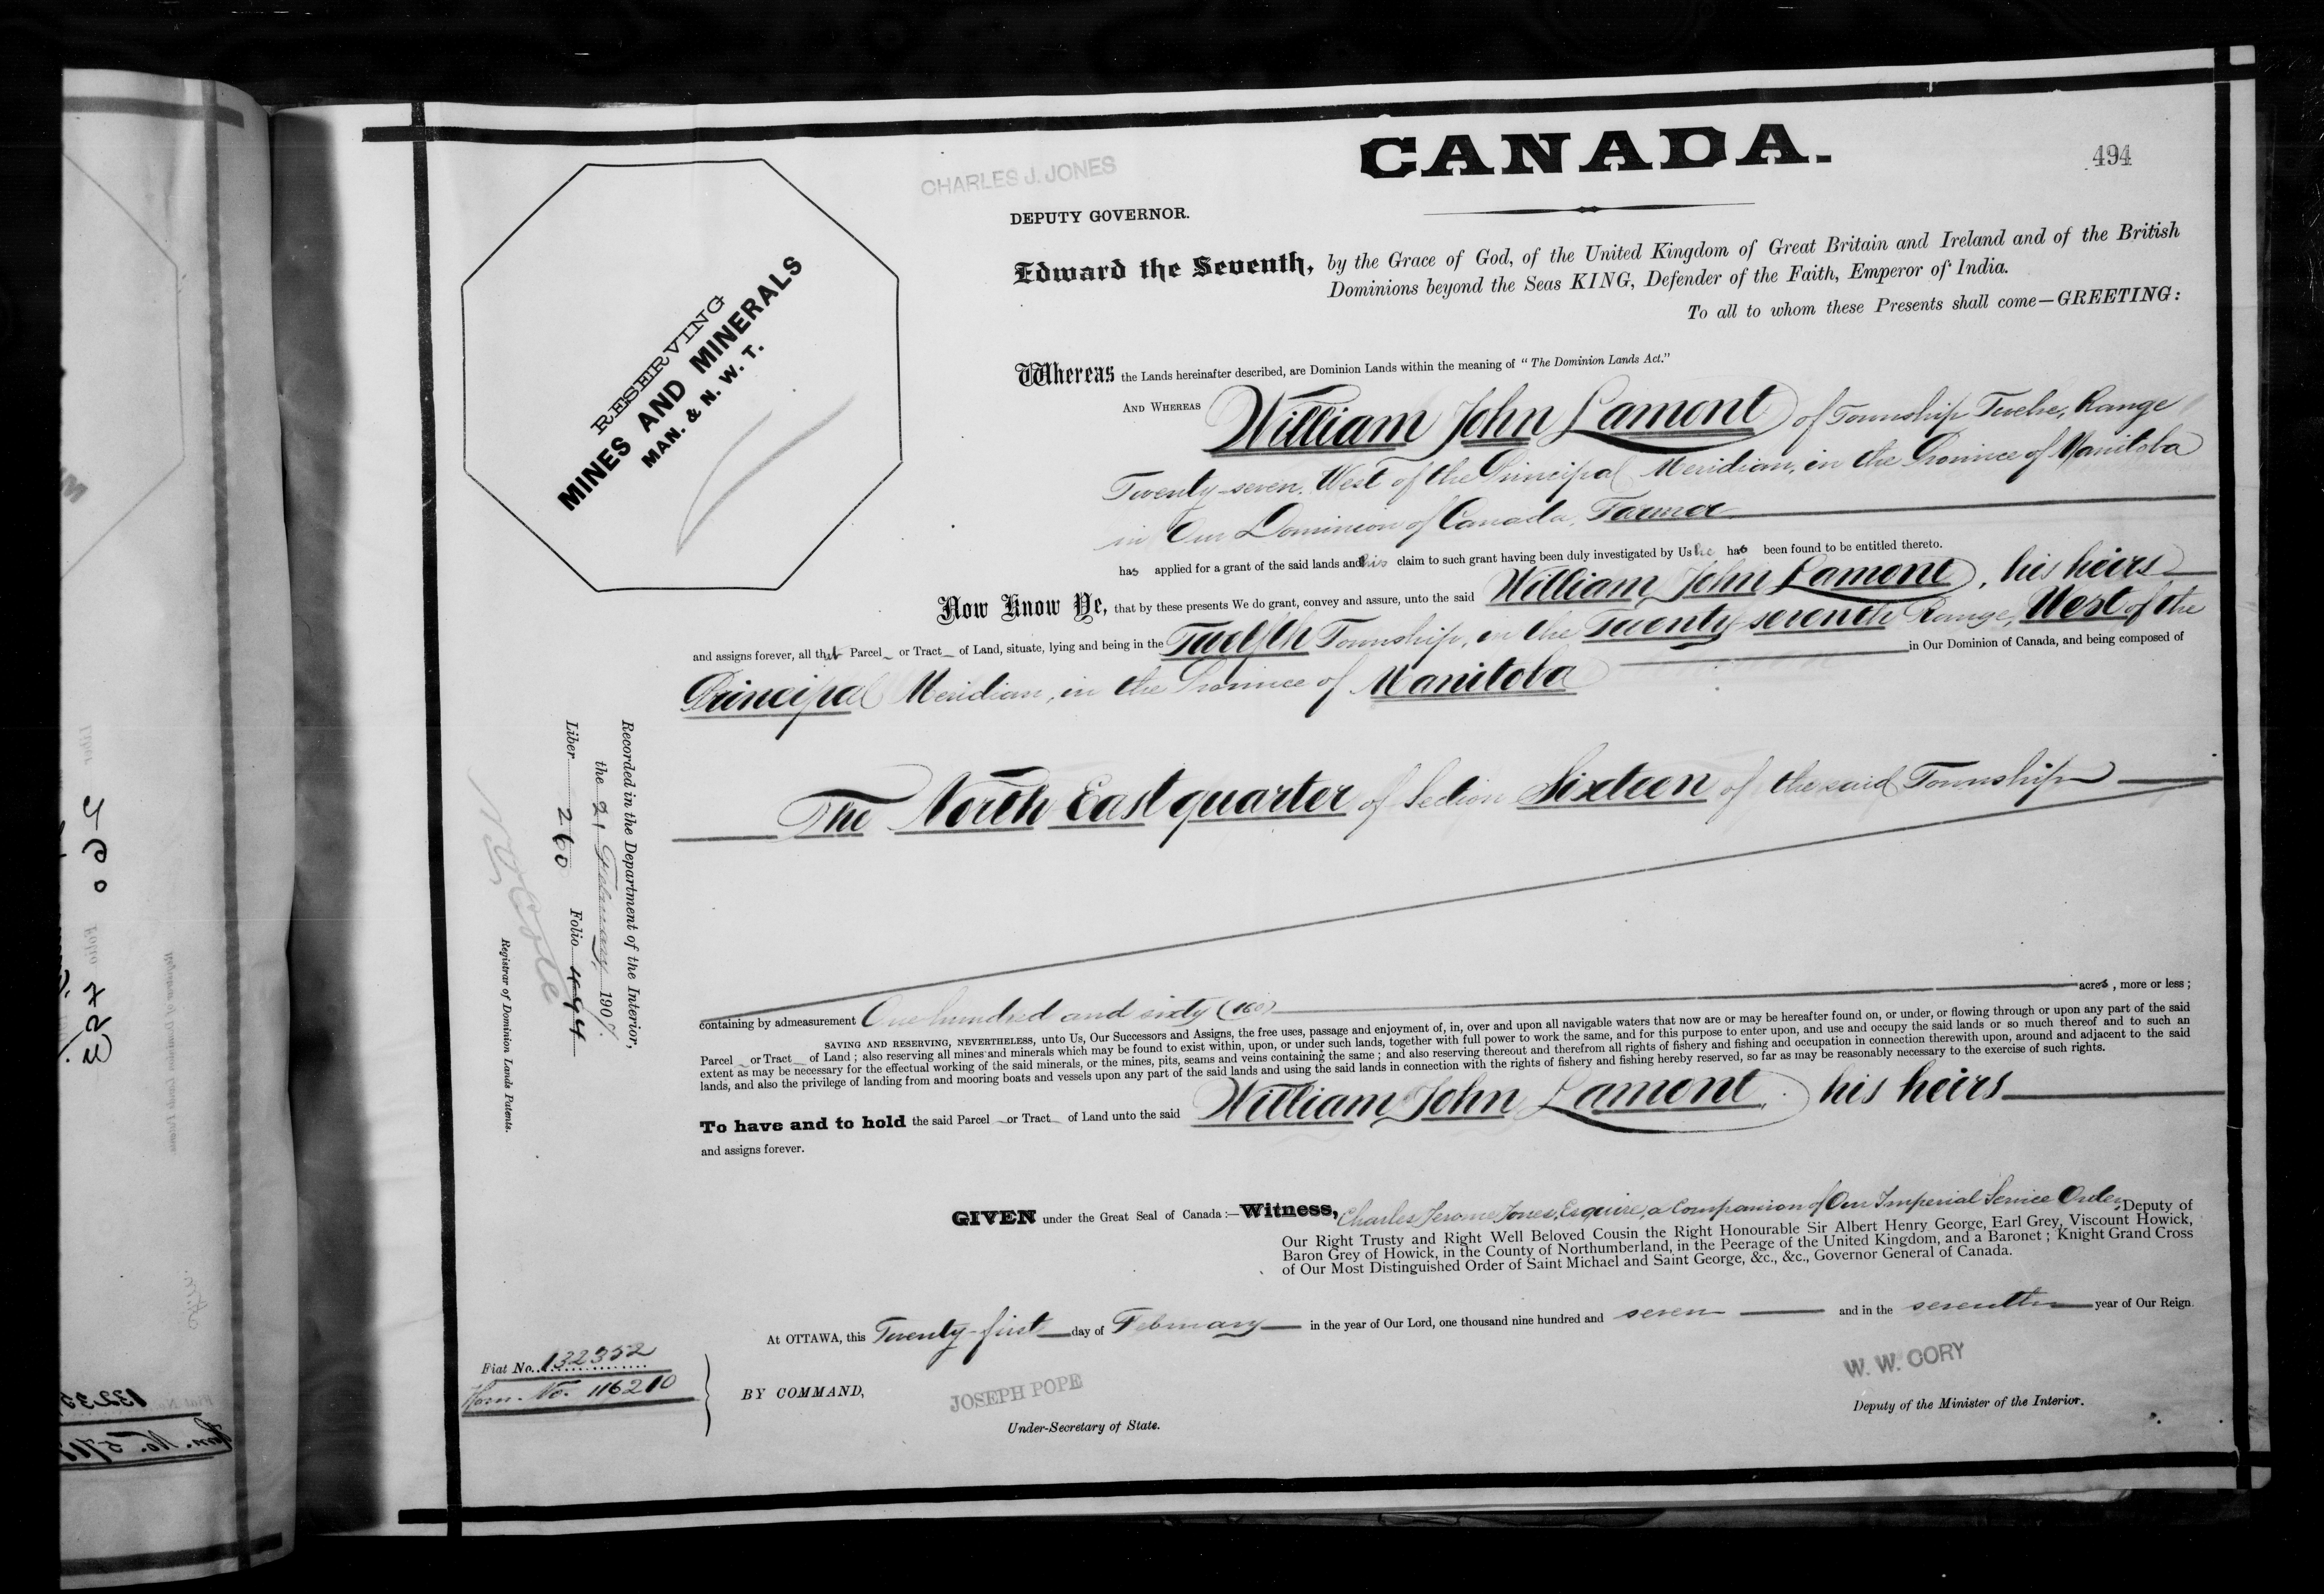 CANADA.
494
CHARLES J. JONES
DEPUTY GOVERNOR.
RESERVING
MINES AND MINERALS
MAN. & N. W. T.
Edward the Seventh, by the Grace of God, of the United Kingdom of Great Britain and Ireland and of the British
Dominions beyond the Seas KING, Defender of the Faith, Emperor of India.
To all to whom these Presents shall come—GREETING:
Whereas the Lands hereinafter described, are Dominion Lands within the meaning of "The Dominion Lands Act."
AND WHEREAS William John Lamont of Township Twelve, Range
Twenty-seven, West of the Principal Meridian, in the Province of Manitoba
in Our Dominion of Canada, Farmer
has applied for a grant of the said lands and his claim to such grant having been duly investigated by Us he has been found to be entitled thereto.
Now Know Ye, that by these presents We do grant, convey and assure, unto the said William John Lamont, his heirs
and assigns forever, all that Parcel or Tract of Land, situate, lying and being in the Twelfth Township, in the Twenty-seventh Range, West of the
Principal Meridian, in the Province of Manitoba in Our Dominion of Canada, and being composed of
The North East quarter of Section Sixteen of the said Township
containing by admeasurement One hundred and sixty (160) acres, more or less;
SAVING AND RESERVING, NEVERTHELESS, unto Us, Our Successors and Assigns, the free uses, passage and enjoyment of, in, over and upon all navigable waters that now are or may be hereafter found on, or under, or flowing through or upon any part of the said
Parcel or Tract of Land; also reserving all mines and minerals which may be found to exist within, upon, or under such lands, together with full power to work the same, and for this purpose to enter upon, and use and occupy the said lands or so much thereof and to such an
extent as may be necessary for the effectual working of the said minerals, or the mines, pits, seams and veins containing the same; and also reserving thereout and therefrom all rights of fishery and fishing and occupation in connection therewith upon, around and adjacent to the said
lands, and also the privilege of landing from and mooring boats and vessels upon any part of the said lands and using the said lands in connection with the rights of fishery and fishing hereby reserved, so far as may be reasonably necessary to the exercise of such rights.
To have and to hold the said Parcel or Tract of Land unto the said William John Lamont, his heirs
and assigns forever.
GIVEN under the Great Seal of Canada:—Witness, Charles Jerome Jones, Esquire, a Companion of Our Imperial Service Order, Deputy of
Our Right Trusty and Right Well Beloved Cousin the Right Honourable Sir Albert Henry George, Earl Grey, Viscount Howick,
Baron Grey of Howick, in the County of Northumberland, in the Peerage of the United Kingdom, and a Baronet; Knight Grand Cross
of Our Most Distinguished Order of Saint Michael and Saint George, &c., &c., Governor General of Canada.
At OTTAWA, this Twenty-first day of February in the year of Our Lord, one thousand nine hundred and seven and in the seventh year of Our Reign.
Fiat No. 132352
Hom. No. 116210
BY COMMAND,
JOSEPH POPE
Under-Secretary of State.
W. W. CORY
Deputy of the Minister of the Interior.
Recorded in the Department of the Interior,
the 21 February 1907.
Liber 260 Folio 494
Registrar of Dominion Lands Patents.